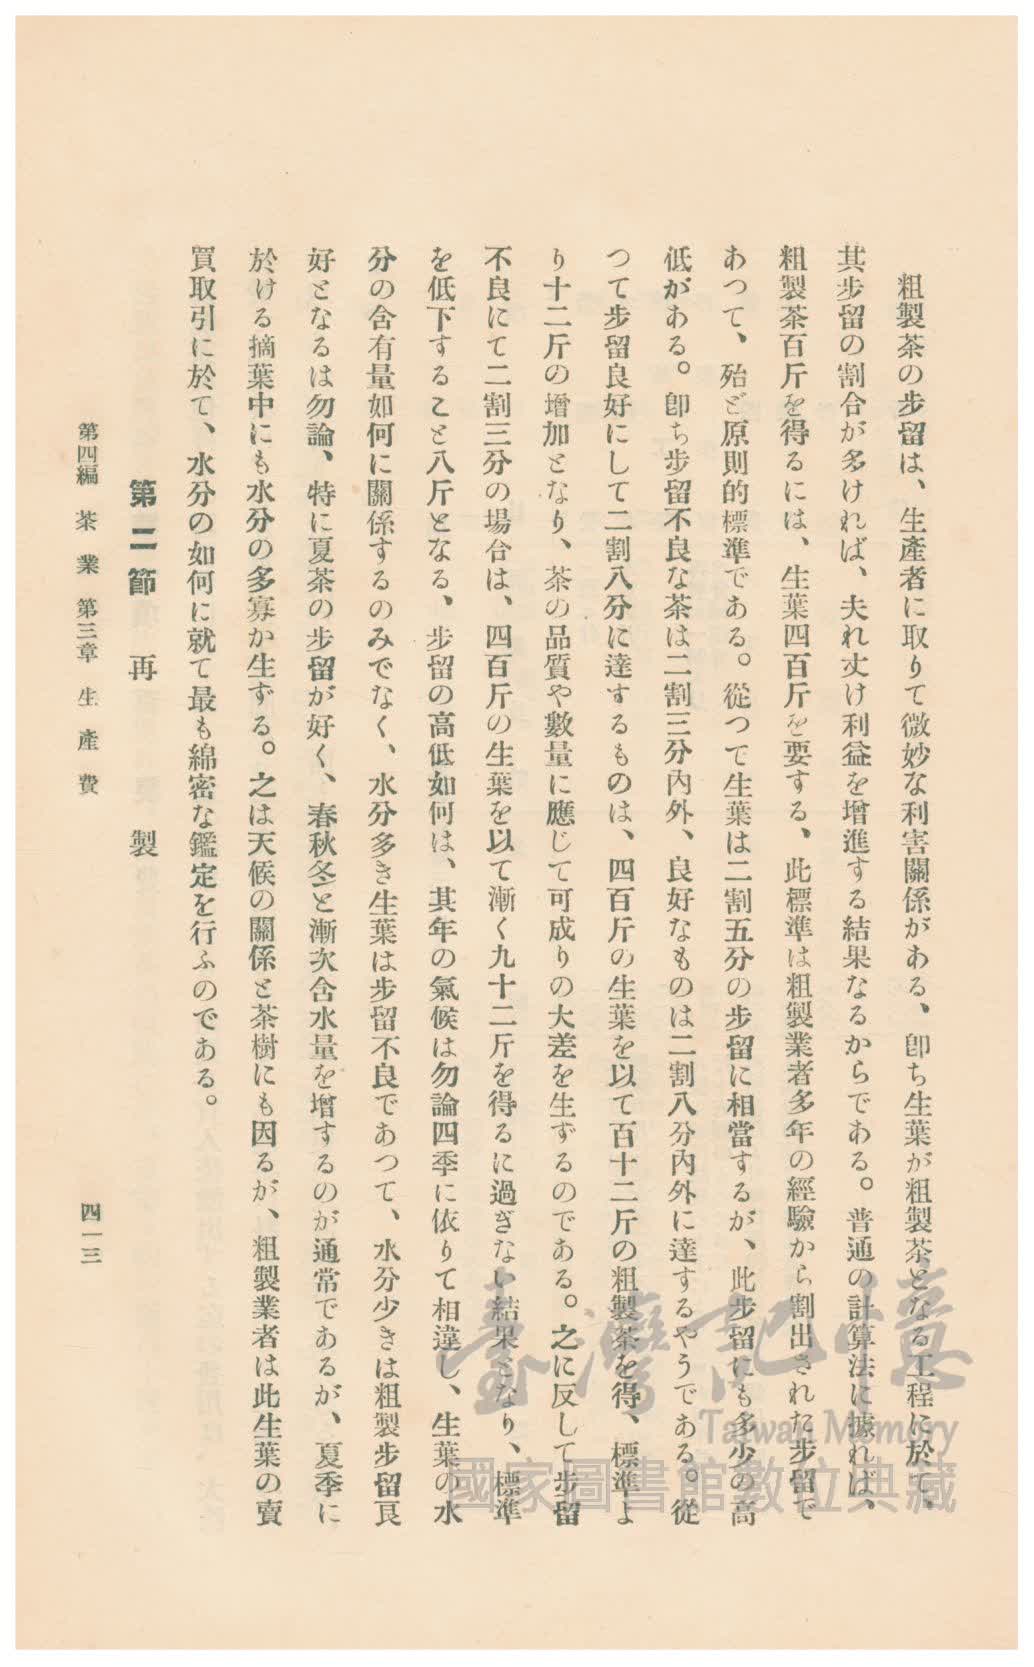 粗製茶の步留は、生產者に取りて微妙な利害關係がある、卽ち生葉が粗製茶となる工程に於て、
其步留の割合が多ければ、夫れ丈け利益を增進する結果なるからである。普通の計算法に據れば、
粗製茶百斤を得るには、生葉四百斤を要する、此標準は粗製業者多年の經驗から割出された步留で
あつて、殆ど原則的標準である。從つて生葉は二割五分の步留に相當するが、此步留にも多少の高
低がある。卽ち步留不良な茶は二割三分內外、良好なものは二割八分內外に達するやうである。從
つて步留良好にして二割八分に達するものは、四百斤の生葉を以て百十二斤の粗製茶を得、標準よ
り十二斤の增加となり、茶の品質や數量に應じて可成りの大差を生ずるのである。之に反して步留
不良にて二割三分の場合は、四百斤の生葉を以て漸く九十二斤を得るに過ぎない結果となり、標準
を低下すること八斤となる、步留の高低如何は、其年の氣候は勿論四季に依りて相違し、生葉の水
分の含有量如何に關係するのみでなく、水分多き生葉は步留不良であつて、水分少きは粗製步留良
好となるは勿論、特に夏茶の步留が好く、春秋冬と漸次含水量を增するのが通常であるが、夏季に
於ける摘葉中にも水分の多寡か生ずる。之は天候の關係と茶樹にも因るが、粗製業者は此生葉の賣
買取引に於て、水分の如何に就て最も綿密な鑑定を行ふのである。
第二節 再製
第四編 茶業 第三章 生產費
四一三
臺灣記憶
Taiwan Memory
國家圖書館數位典藏